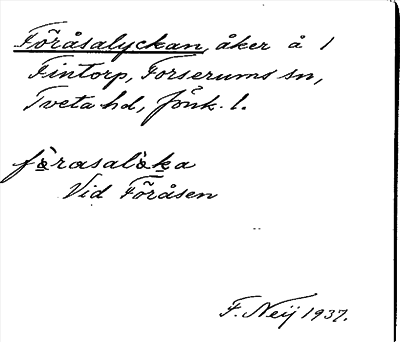 Föråsalyckan, åker å 1
Fintorp, Forserums sn,
Tveta hd, Jönk. l.
förasalöka
Vid Föråsen
F. Neij 1937.